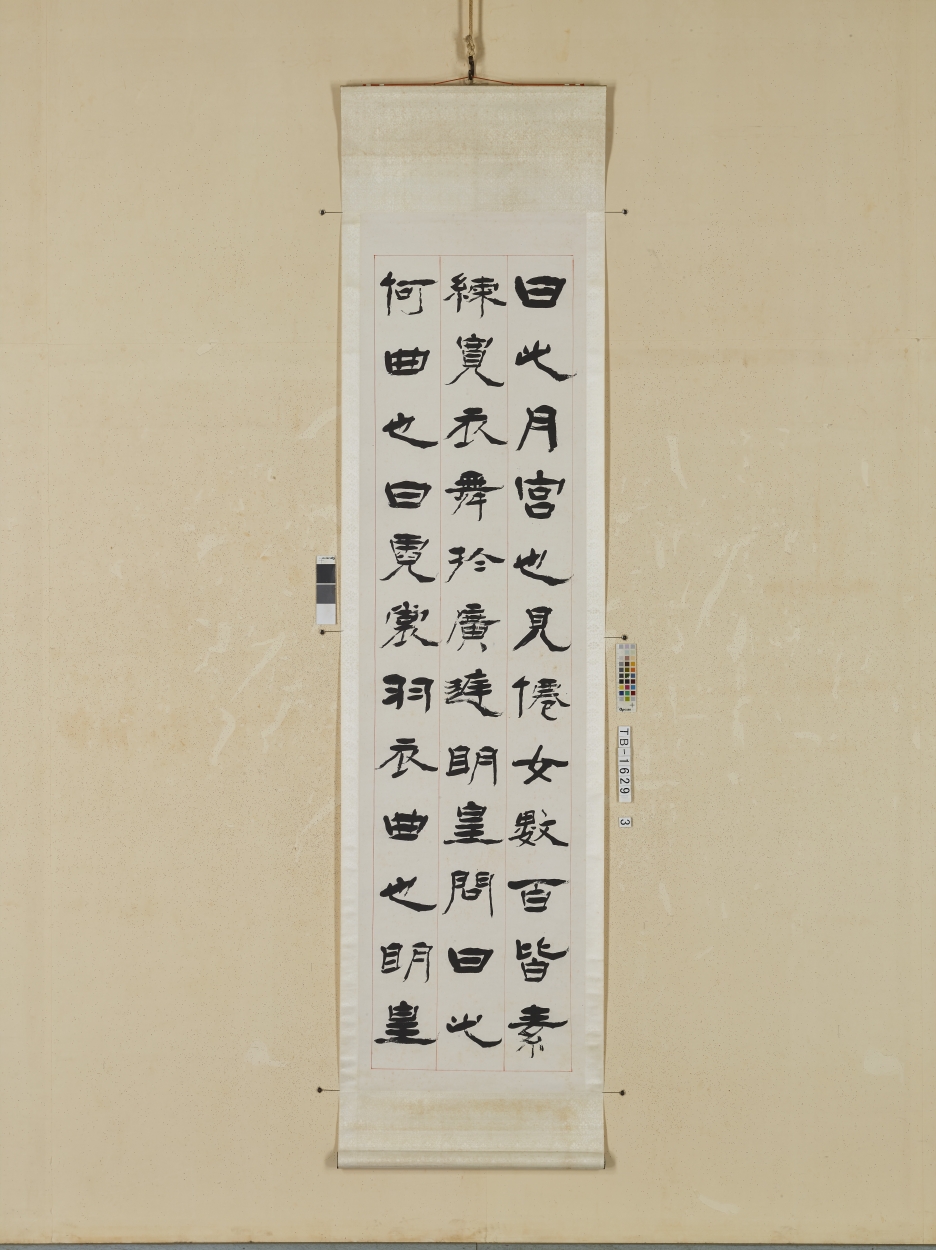 曰此月宮也見僊女數百皆素
練寬衣舞於廣遲朙皇問曰此
何曲也曰霓裳羽衣曲也朙皇
TB-1629
3